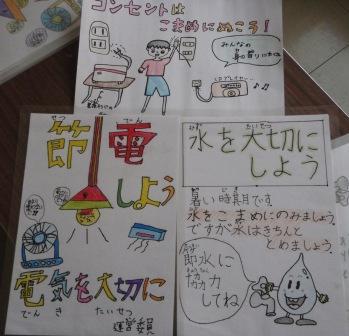 コンセントは
こまめにぬこう!
みんなの
CDプレイヤー
せつ でん
節電
しよう
電気を大切に
でん き たいせつ
運営委員
たいせつ
水を大切に
しよう
暑い時期です。
水をこまめにのみましょう。
ですが水はきちんと
とめましょう。
節水に
協力
してね